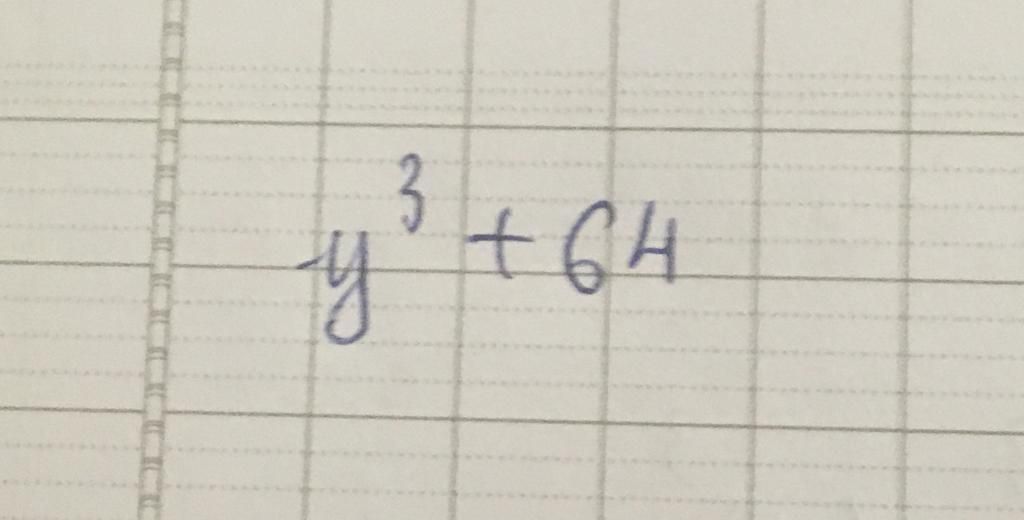 -y³ + 64